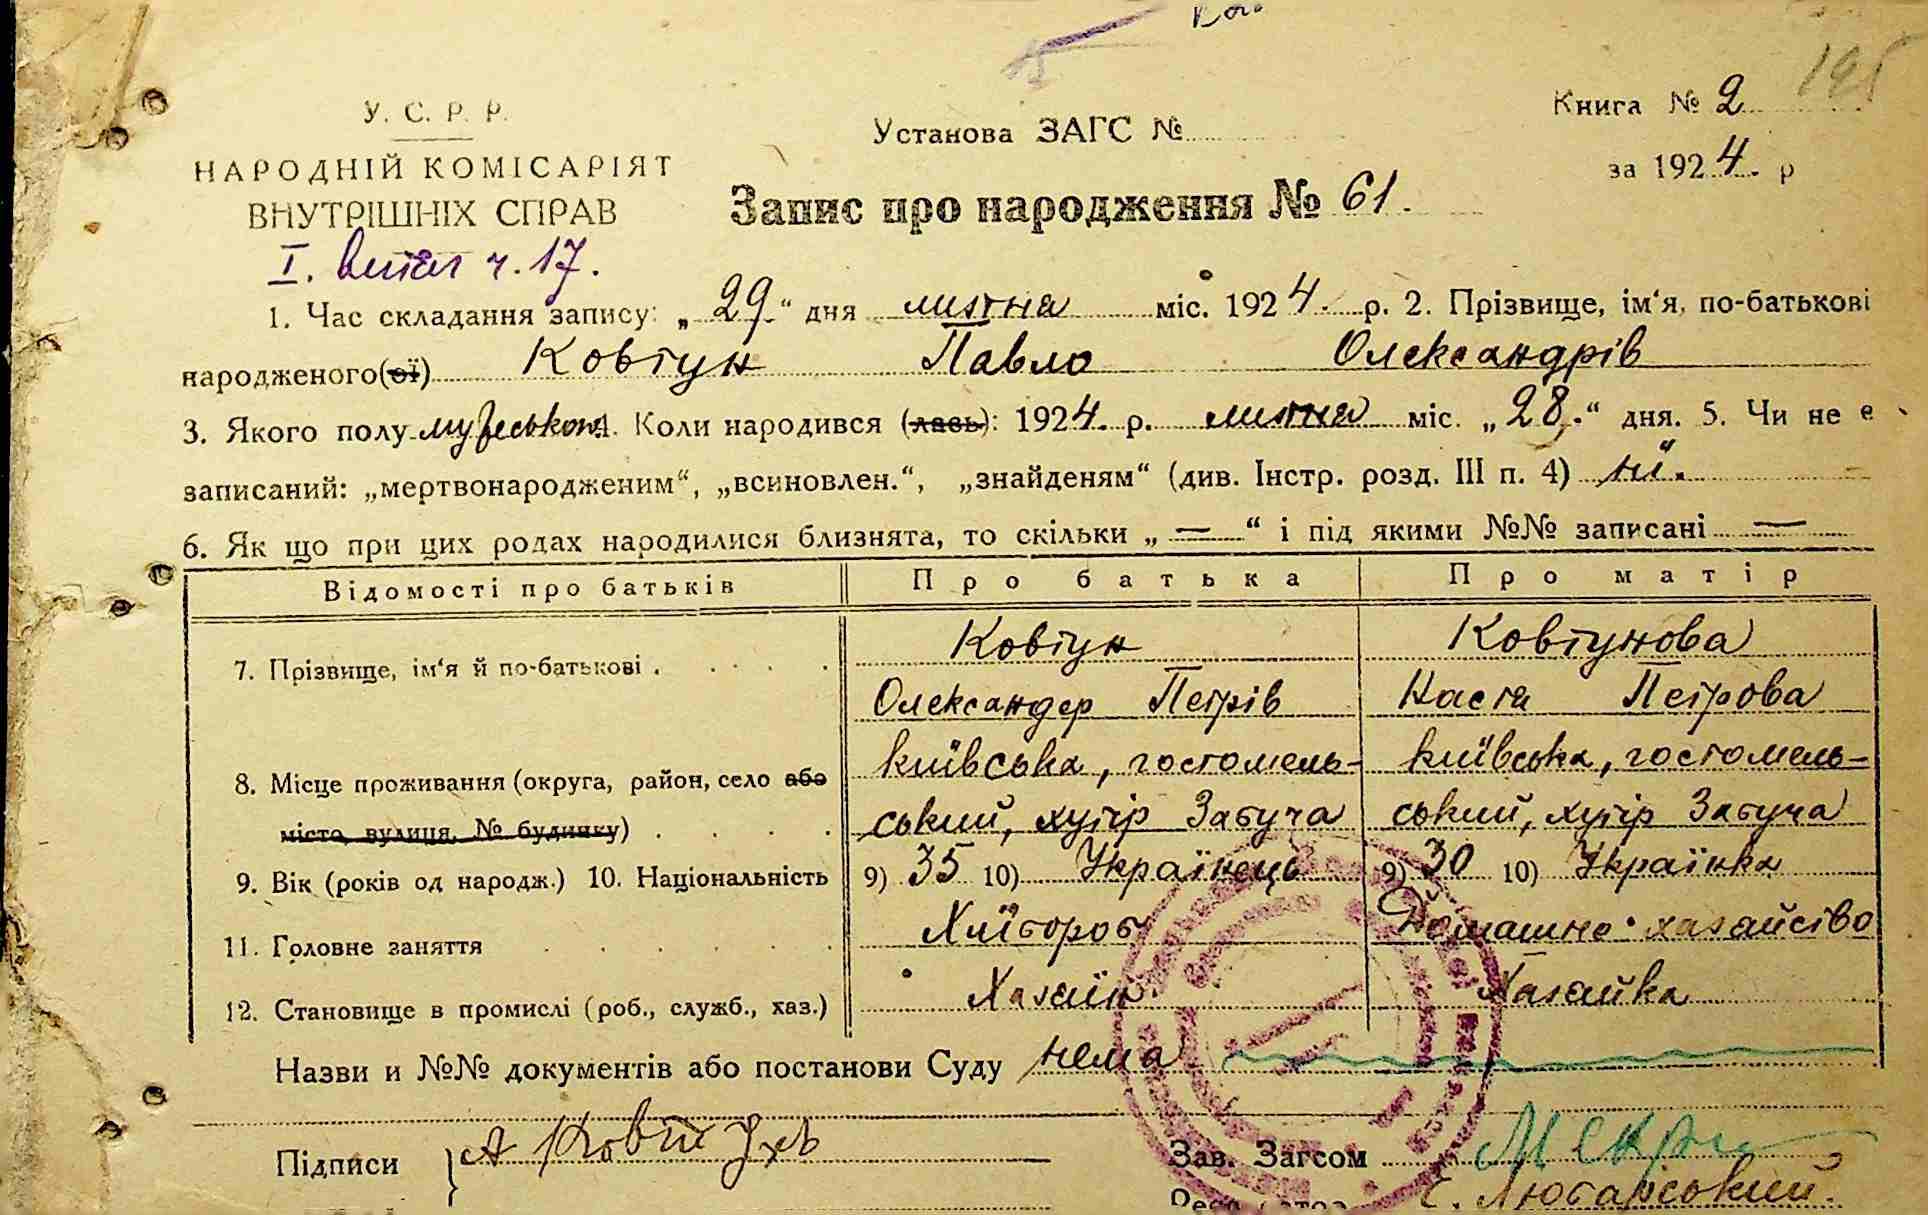 195
У. С. Р. Р.
НАРОДНІЙ КОМІСАРІЯТ
ВНУТРІШНІХ СПРАВ
Установа ЗАГС №
Книга № 2
за 1924. р
Запис про народження № 61.
I. витяг ч. 17.
1. Час складання запису: „29.“ дня липня міс. 1924. р. 2. Прізвище, ім‘я, по-батькові
народженого(ої) Ковтун Павло Олександрів
3. Якого полу мужеськ. 4. Коли народився (лась): 1924. р. липня міс. „28.“ дня. 5. Чи не є
записаний: „мертвонародженим“, „всиновлен.“, „знайденям“ (див. Інстр. розд. III п. 4) ні.
6. Як що при цих родах народилися близнята, то скільки „—“ і під якими №№ записані —
Відомості про батьків Про батька Про матір
7. Прізвище, ім‘я й по-батькові . Ковтун Ковтунова
Олександер Петрів Настя Петрова
8. Місце проживання (округа, район, село або Київська, гостомель- Київська, гостомель-
місто, вулиця, № будинку) ський, хутір Забуча ський, хутір Забуча
9. Вік (років од народж.) 10. Національність 9) 35 10) Українець 9) 30 10) Українка
11. Головне заняття Хлібороб Домашнє хазайство
12. Становище в промислі (роб., служб., хаз.) Хазаїн Хазайка
Назви и №№ документів або постанови Суду нема
Підписи А Ковтунъ Зав. Загсом
Є. Лютарський.